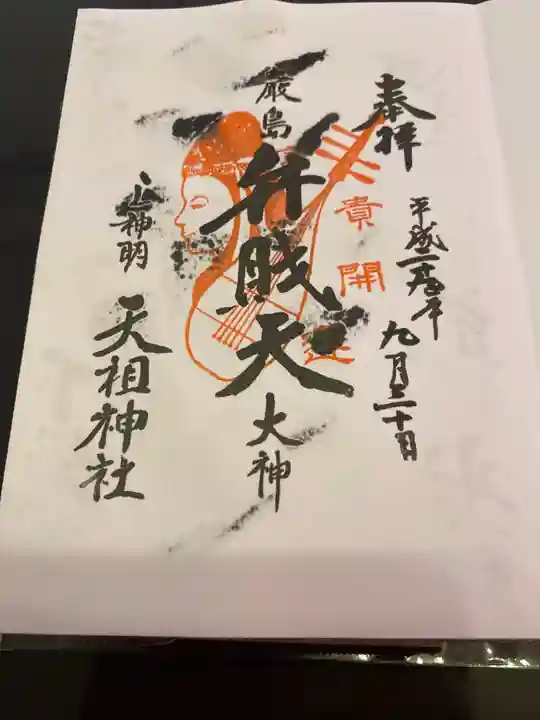 奉拝
平成二
九月三十日
貴開運
厳島
弁財天
大神
上神明
天祖神社